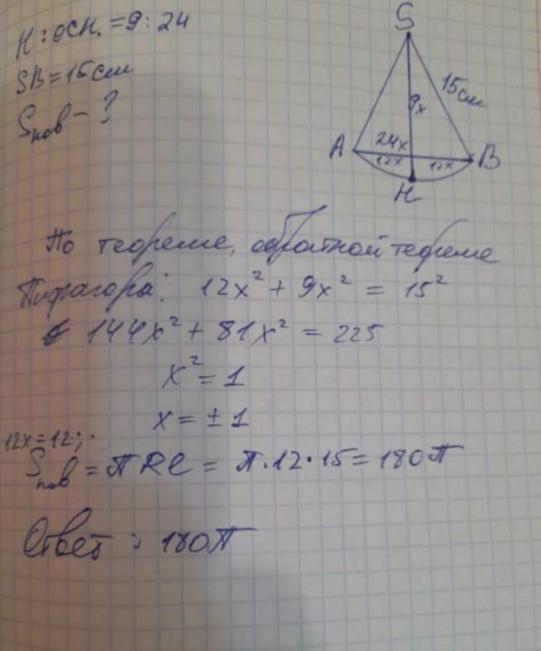 H : осн. = 9 : 24
SB = 15см
Sпов - ?
S
15см
9x
A
24x
B
12x
12x
H
По теореме, обратной теореме
Пифагора: 12x² + 9x² = 15²
144x² + 81x² = 225
x² = 1
x = ± 1
12x = 12;
Sпов = πRl = π·12·15 = 180π
Ответ: 180π